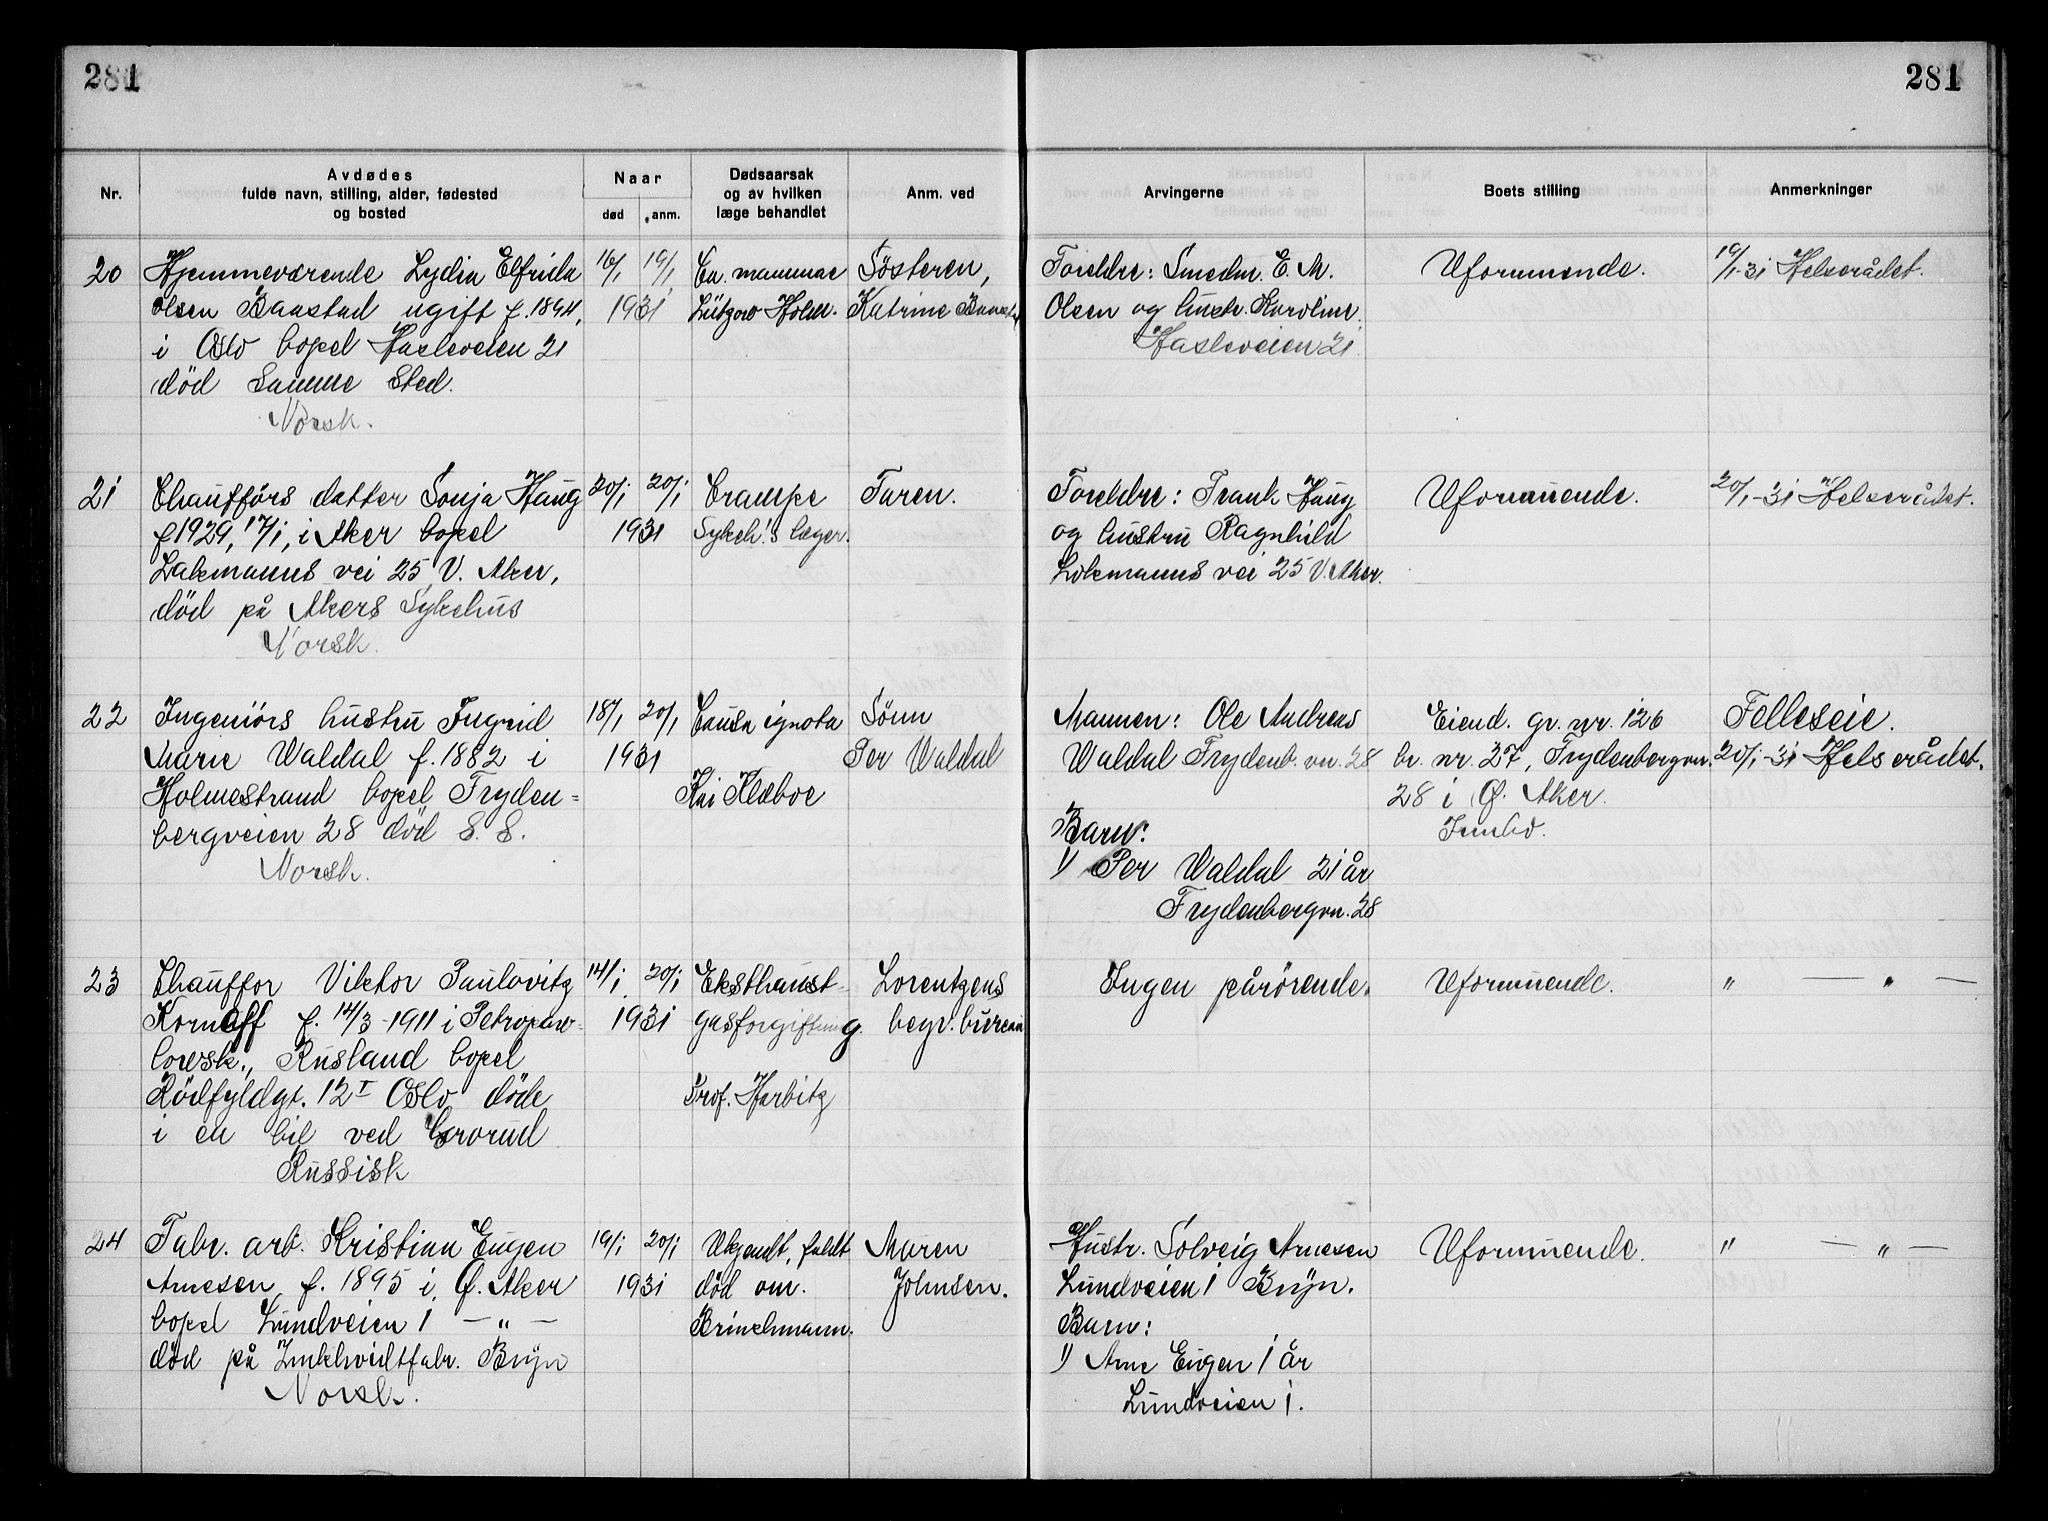 281
281
Nr.
Avdødes
fulde navn, stilling, alder, fødested
og bosted
Naar
død
anm.
Dødsaarsak
og av hvilken
læge behandlet
Anm. ved
Arvingerne
Boets stilling
Anmerkninger
20
Hjemmeværende Lydia Elfrida
Olsen Baastad ugift f. 1894,
i Oslo bopel Hasleveien 21
död samme sted.
Norsk.
16/1 19/1
1931
Ca. mammae
Lützow Holm.
Sösteren,
Katrine Baastad
Foreldre: Smedm. E. M.
Olsen og hustr. Karoline,
Hasleveien 21.
Uformuende.
19/1-31 Helserådet.
21
Chaufförs datter Sonja Haug
f 1929, 17/1, i Aker bopel
Lakmanns vei 25 V. Aker,
död på Akers Sykehus
Norsk.
20/1 20/1
1931
Crampe
Sykeh.'s læger.
Faren.
Foreldre: Frank Haug
og hustru Ragnhild
Lokmanns vei 25 V. Aker.
Uformuende.
20/1-31 Helserådet.
22
Ingeniörs hustru Ingrid
Marie Waldal f. 1882 i
Holmestrand bopel Fryden=
bergveien 28 död s. s.
Norsk.
18/1 20/1
1931
Causa ignota
Kai Klæboe
Sönn
Per Waldal
Mannen: Ole Andreas
Waldal Frydenb. vn. 28
Barn:
1) Per Waldal 21 år
Frydenbergvn. 28
Eiend. gr. nr. 126
br. nr. 27, Frydenbergvn.
28 i Ø. Aker.
Innbo.
Felleseie.
20/1-31 Helserådet.
23
Chauffor Viktor Paulovitz
Kornaff f. 14/3-1911 i Petropaw-
lowsk., Rusland bopel
Rödfyldgt. 12 I Oslo döde
i en bil ved Grorud
Russisk
14/1 20/1
1931
Eksthaust-
gasforgiftning.
Prof. Harbitz
Lorentzens
begr. bureau
Ingen pårörende.
Uformuende.
" — " —
24
Fabr. arb. Kristian Eugen
Arnesen f. 1895 i Ø. Aker
bopel Lundveien 1 — " —
död på Zinkhvidtfabr. Bryn
Norsk.
19/1 20/1
1931
Ukjendt, faldt
död om.
Brinchmann.
Maren
Johnsen.
Hustr. Solveig Arnesen
Lundveien 1 Bryn.
Barn:
1) Arne Eugen 1 år
Lundveien 1.
Uformuende.
" — " —